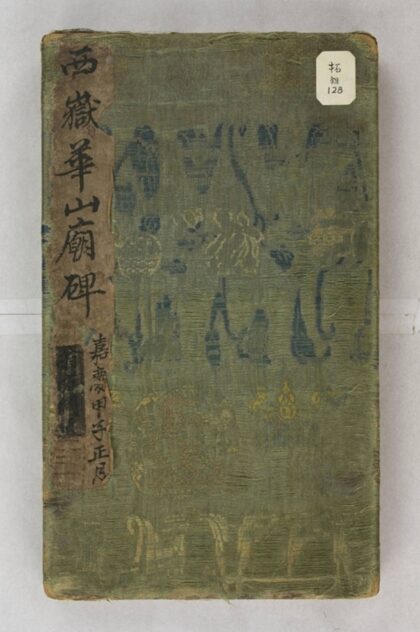 西嶽華山廟碑
嘉慶甲子正月
拓
128